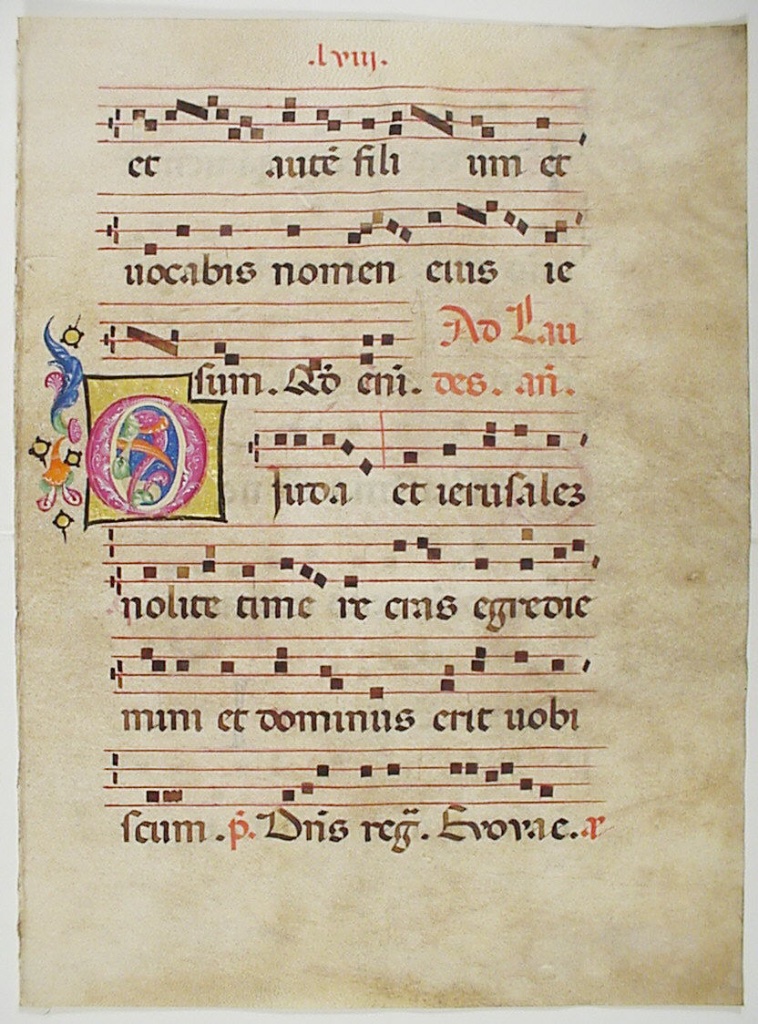 .lviij.
et autē fili um et
uocabis nomen eius ie
Ad Lau
sum. Qđ eni. des. añ.
O Juda et ierusalez
nolite time re cras egredie
mini et dominus erit uobi
scum. p̄. Dn̄s reg̃. Evovae. a